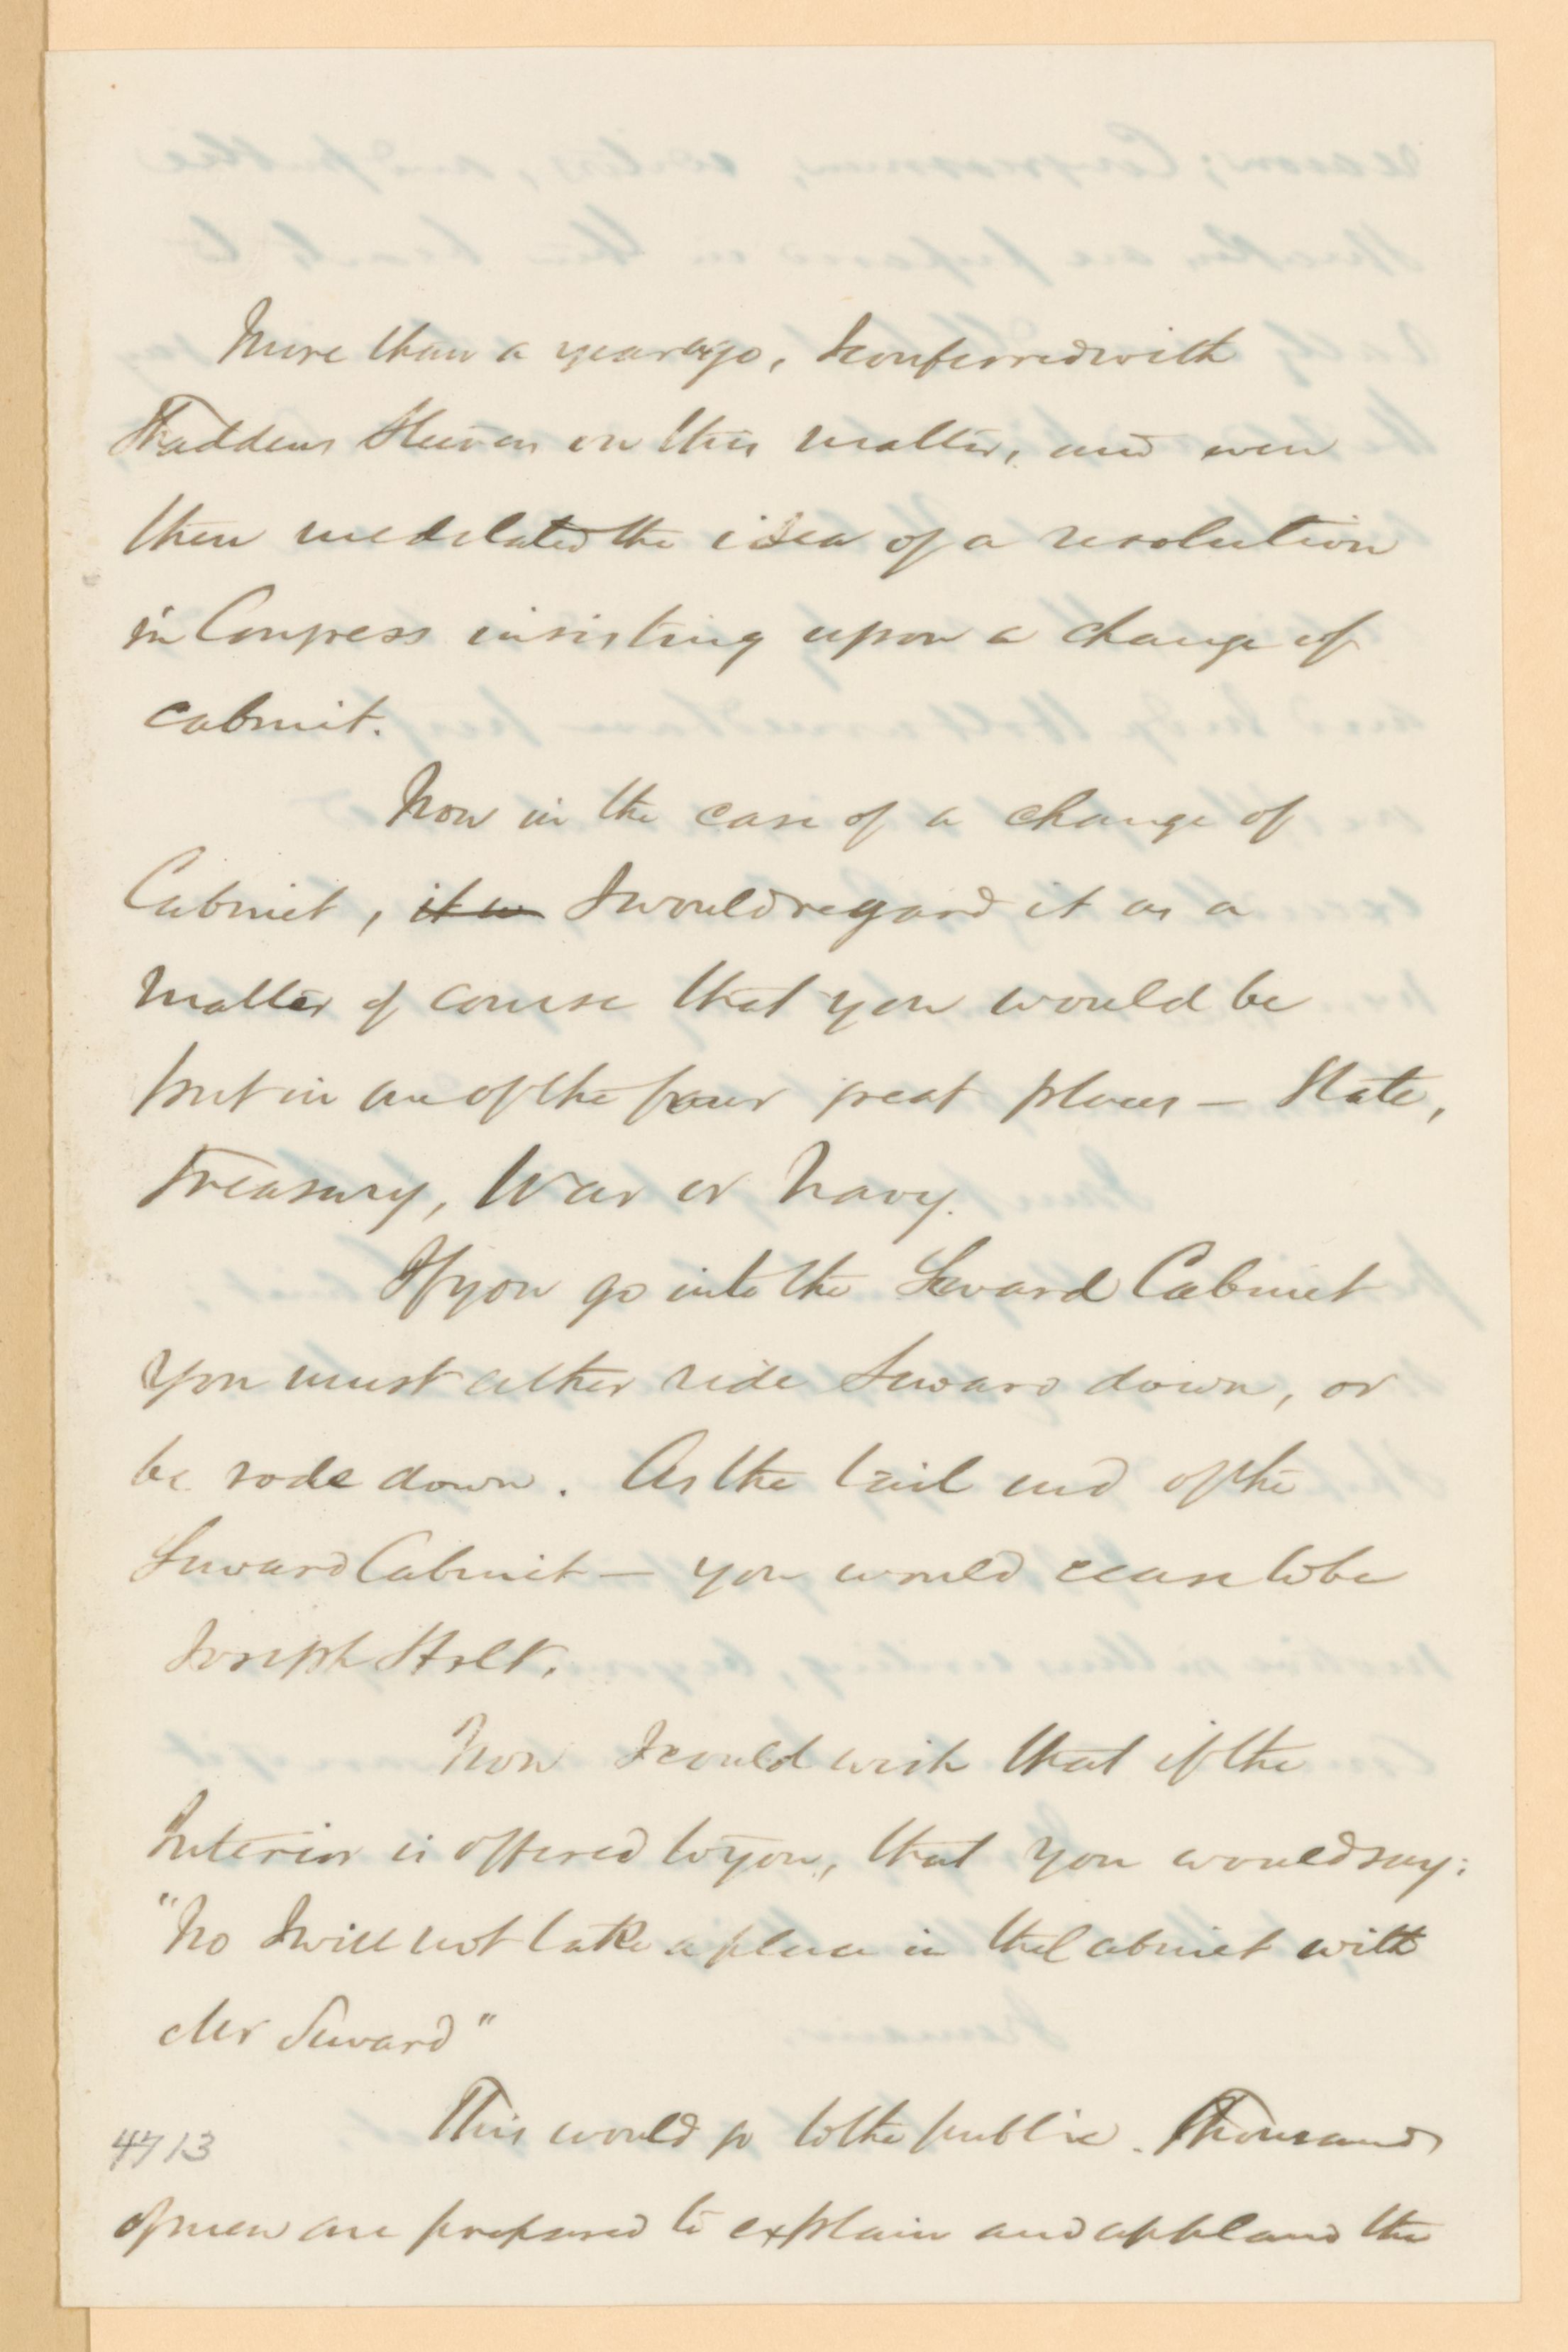 More than a year ago, I conferred with
Thaddeus Steven on this matter, and even
then medelated the idea of a resolution
in Congress insisting upon a change of
cabinit.
Now in the case of a change of
Cabinet, it w I would regard it as a
matter of course that you would be
put in one of the four great places — State,
Treasury, War or Navy.
If you go into the Seward Cabinet
you must either ride Seward down, or
be rode down. As the tail end of the
Seward Cabinet — you would cease to be
Joseph Holt.
Now I could wish that if the
Interior is offered to you, that you would say:
"No I will not take a place in the Cabinet with
Mr Seward"
This would go to the public. Thousands
4713
of men are prepared to explain and applaud the